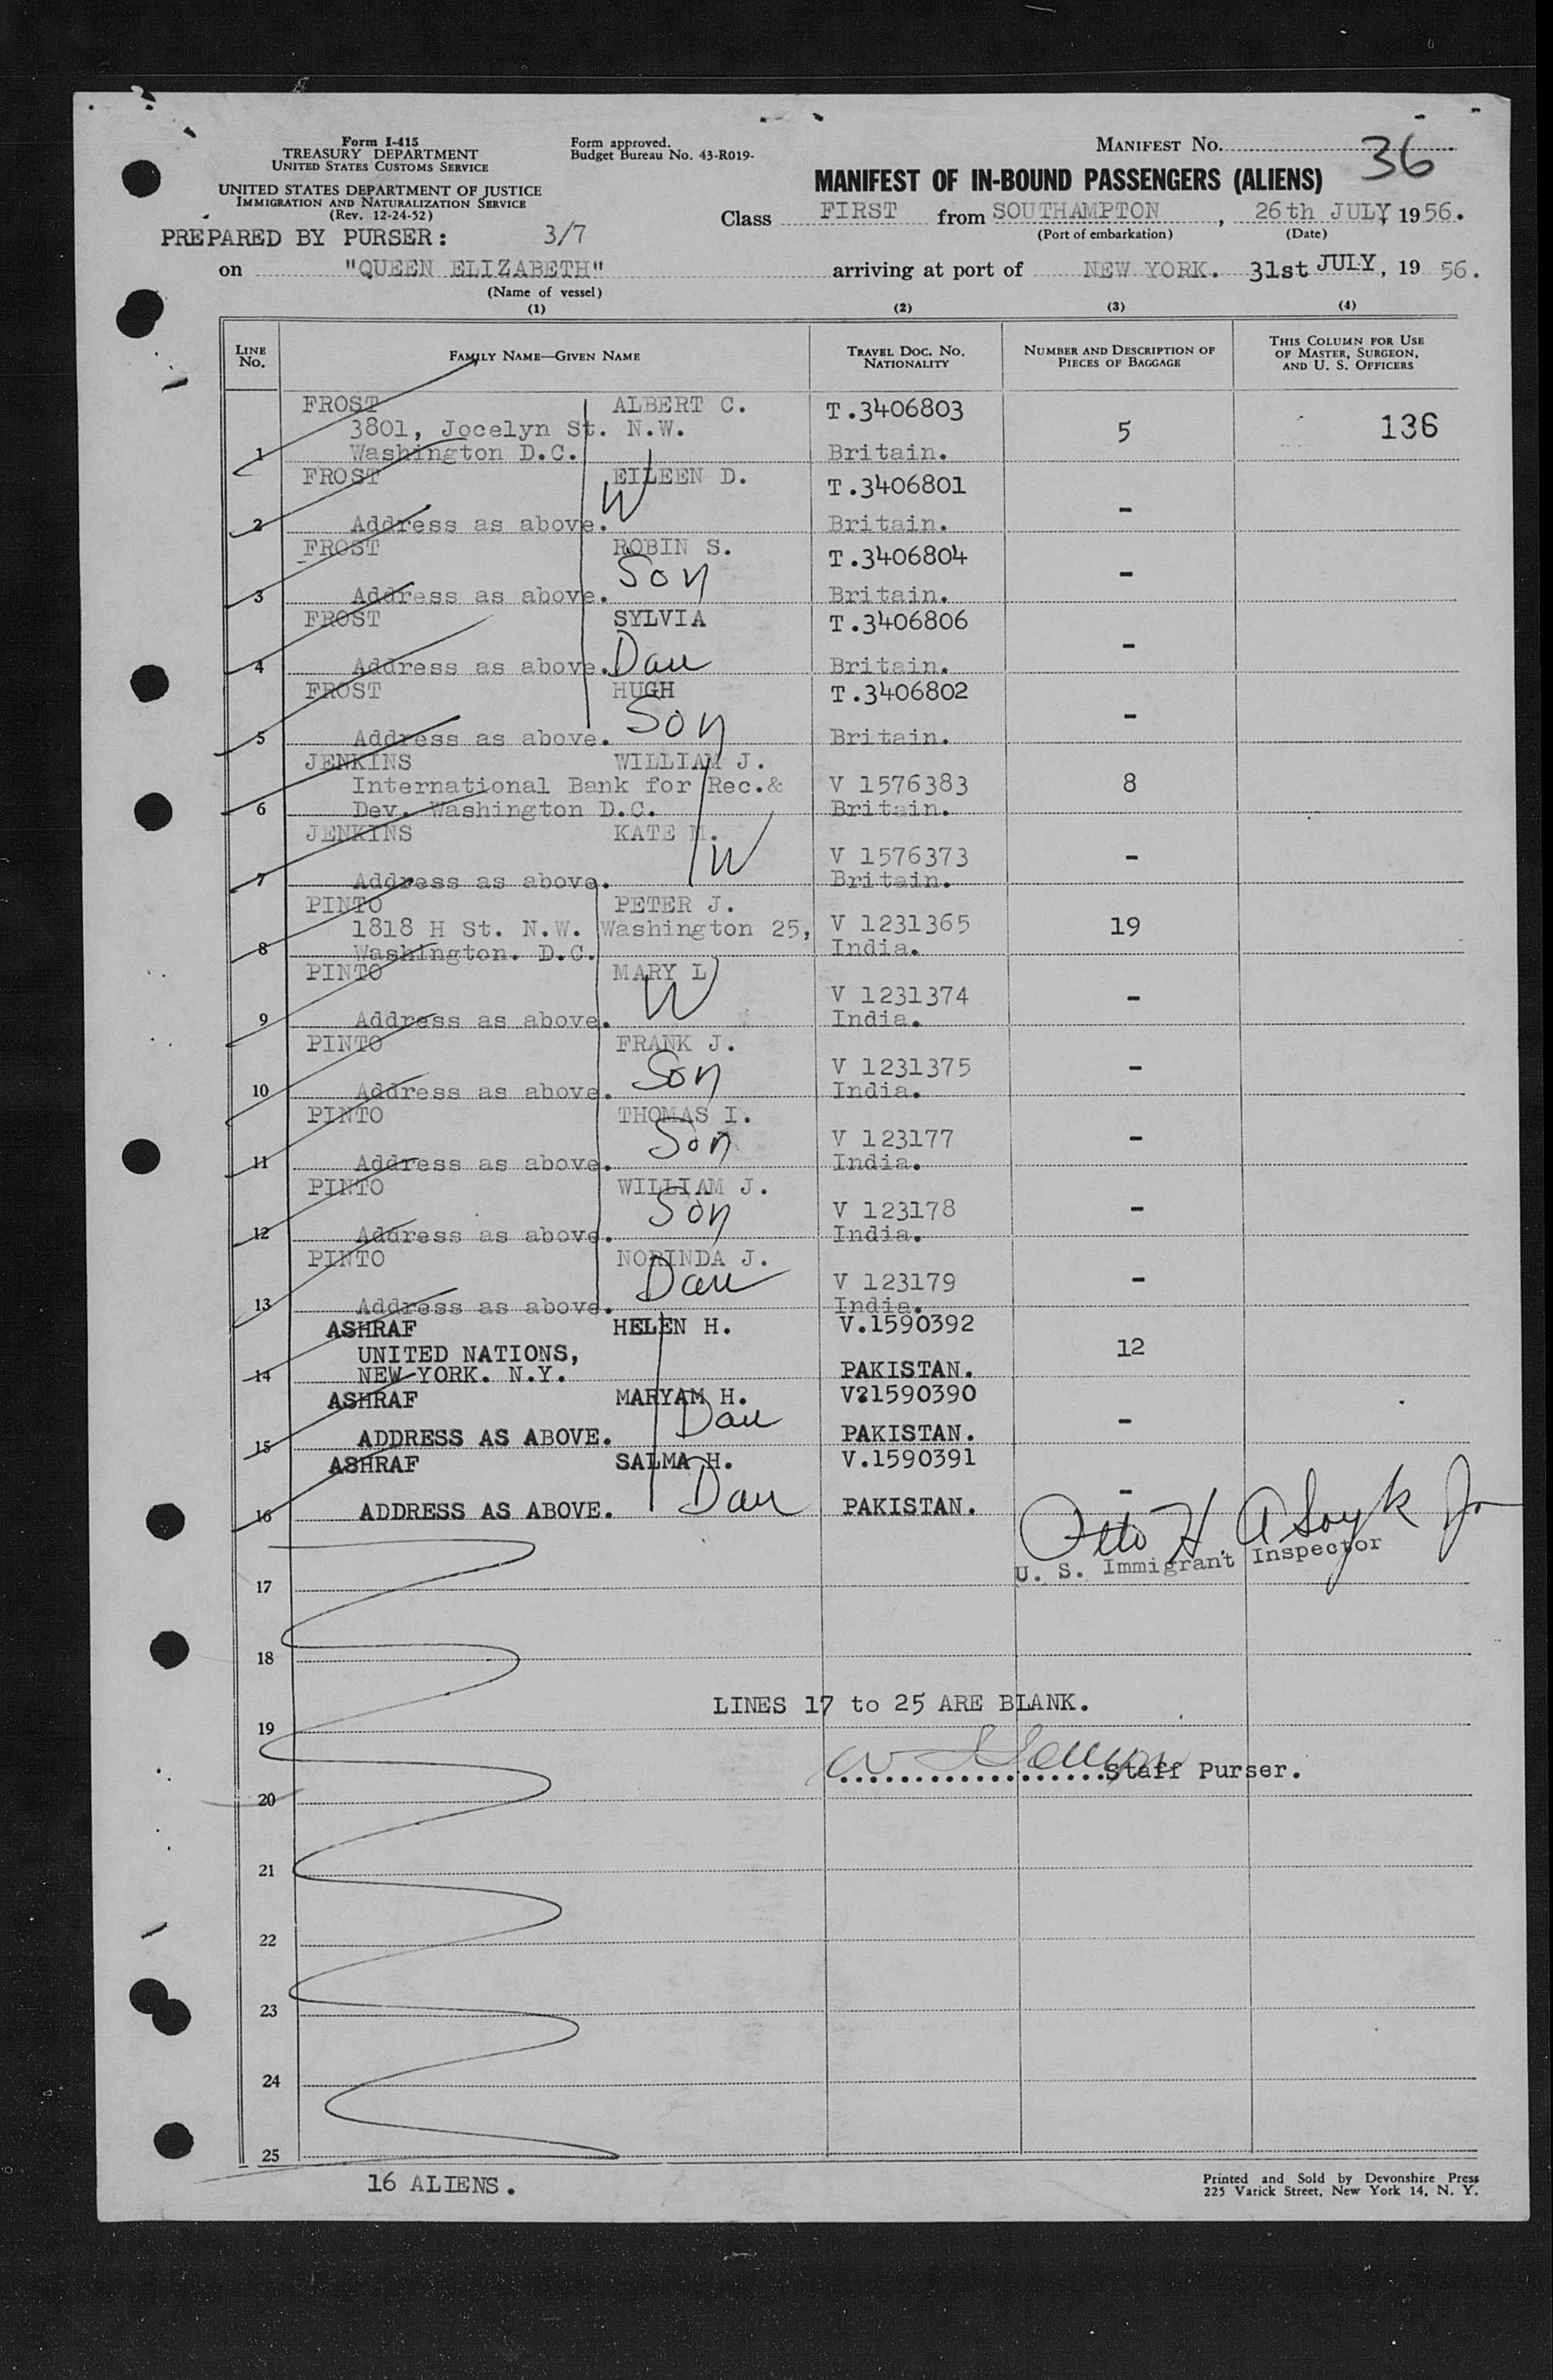 Form I-415
TREASURY DEPARTMENT
UNITED STATES CUSTOMS SERVICE
UNITED STATES DEPARTMENT OF JUSTICE
IMMIGRATION AND NATURALIZATION SERVICE
(Rev. 12-24-52)
PREPARED BY PURSER: 3/7
Form approved.
Budget Bureau No. 43-R019-
MANIFEST No. 36
MANIFEST OF IN-BOUND PASSENGERS (ALIENS)
Class FIRST from SOUTHAMPTON, 26th JULY, 1956.
(Port of embarkation) (Date)
on "QUEEN ELIZABETH" arriving at port of NEW YORK. 31st JULY, 19 56.
(Name of vessel)
(1) (2) (3) (4)
LINE No. FAMILY NAME—GIVEN NAME TRAVEL DOC. NO. NATIONALITY NUMBER AND DESCRIPTION OF PIECES OF BAGGAGE THIS COLUMN FOR USE OF MASTER, SURGEON, AND U. S. OFFICERS
FROST ALBERT C. T.3406803
3801, Jocelyn St. N.W. 5 136
1 Washington D.C. Britain.
FROST EILEEN D. T.3406801
W -
2 Address as above. Britain.
FROST ROBIN S. T.3406804
Son -
3 Address as above. Britain.
FROST SYLVIA T.3406806
4 Address as above. Dau Britain. -
FROST HUGH T.3406802
Son -
5 Address as above. Britain.
JENKINS WILLIAM J.
International Bank for Rec.& V 1576383 8
6 Dev. Washington D.C. Britain.
JENKINS KATE M.
W V 1576373 -
7 Address as above. Britain.
PINTO PETER J.
1818 H St. N.W. Washington 25, V 1231365 19
8 Washington. D.C. India.
PINTO MARY L
W V 1231374 -
9 Address as above. India.
PINTO FRANK J.
Son V 1231375 -
10 Address as above. India.
PINTO THOMAS I.
Son V 123177 -
11 Address as above. India.
PINTO WILLIAM J.
Son V 123178 -
12 Address as above. India.
PINTO NORINDA J.
Dau V 123179 -
13 Address as above. India.
ASHRAF HELEN H. V.1590392
UNITED NATIONS, 12
14 NEW YORK. N.Y. PAKISTAN.
ASHRAF MARYAM H. V?1590390
Dau -
15 ADDRESS AS ABOVE. PAKISTAN.
ASHRAF SALMA H. V.1590391
Dau -
16 ADDRESS AS ABOVE. PAKISTAN.
Otto H.
U. S. Immigrant Inspector
17
18
LINES 17 to 25 ARE BLANK.
19
Staff Purser.
20
21
22
23
24
25
16 ALIENS.
Printed and Sold by Devonshire Press
225 Varick Street, New York 14, N. Y.